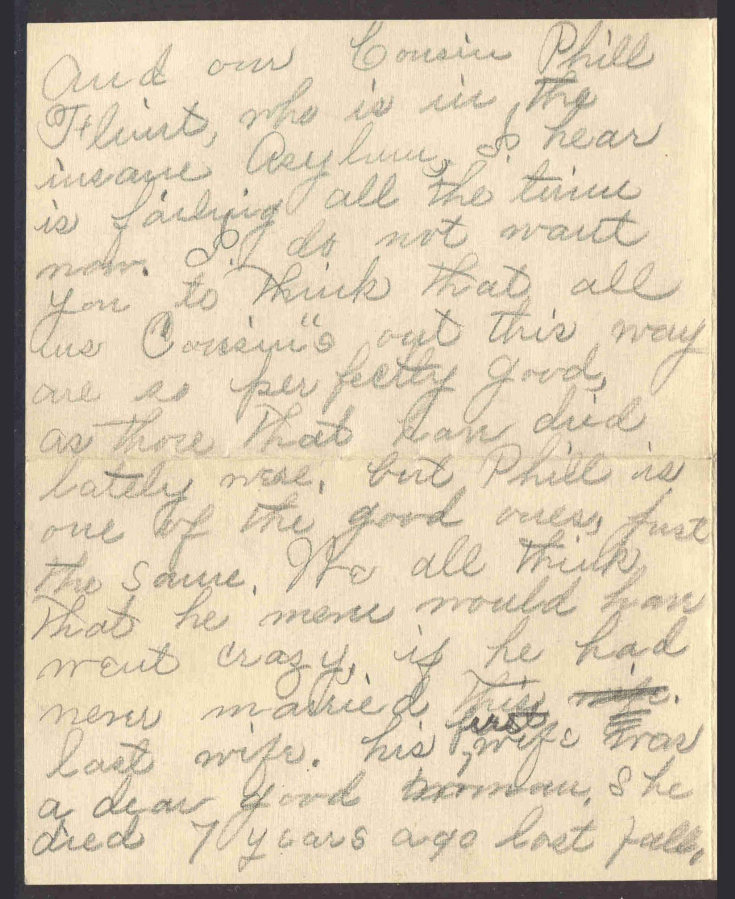 And our Cousin Phill
Flint, who is in the
insane Asylum, I hear
is failing all the time
now. I do not want
you to think that all
us Cousin"s out this way
are so perfectly good,
as those that have died
lately were, but Phill is
one of the good ones, just
the same. We all think
that he never would have
went crazy, if he had
never married this wife.
last wife. his first wife was
a dear good woman. She
died 7 years ago last fall,